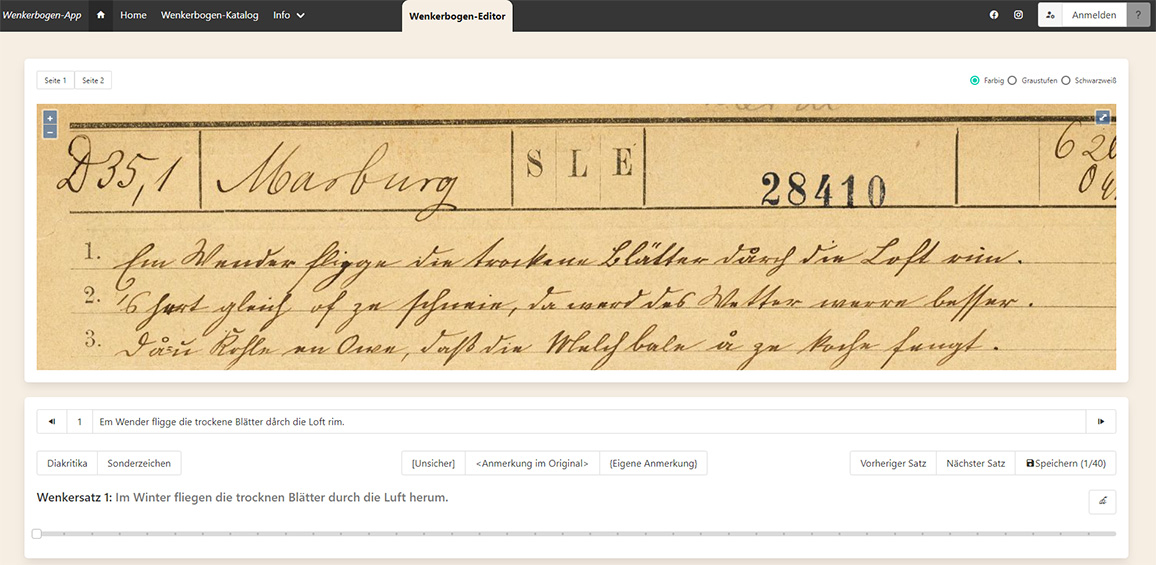 Wenkerbogen-App Home Wenkerbogen-Katalog Info Wenkerbogen-Editor Anmelden ?
Seite 1 Seite 2 Farbig Graustufen Schwarzweiß
+
−
D35,1 Marburg S L E 28410
1. Em Wender fligge die trockene Blätter dårch die Loft rim.
2. 's hort gleich of ze schneie, da werd des Wetter werre besser.
3. Då=u Kohle en Owe, daß die Melch bale å ze koche fengt.
1 Em Wender fligge die trockene Blätter dårch die Loft rim.
Diakritika Sonderzeichen [Unsicher] <Anmerkung im Original> {Eigene Anmerkung} Vorheriger Satz Nächster Satz Speichern (1/40)
Wenkersatz 1: Im Winter fliegen die trocknen Blätter durch die Luft herum.